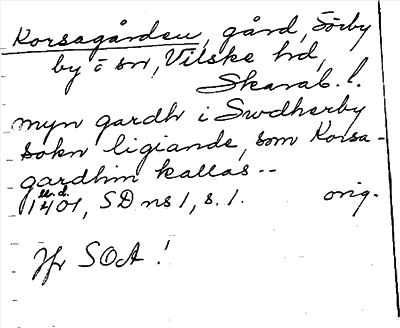 Korsagården, gård, Sörby
by o sn, Vilske hd,
Skarab. l.
myn gardh i Swdherby
sokn ligiande, som Korsa-
gardhin kallas --
u.d.
1401, SD ns 1, s. 1. orig.
Jfr SOA !